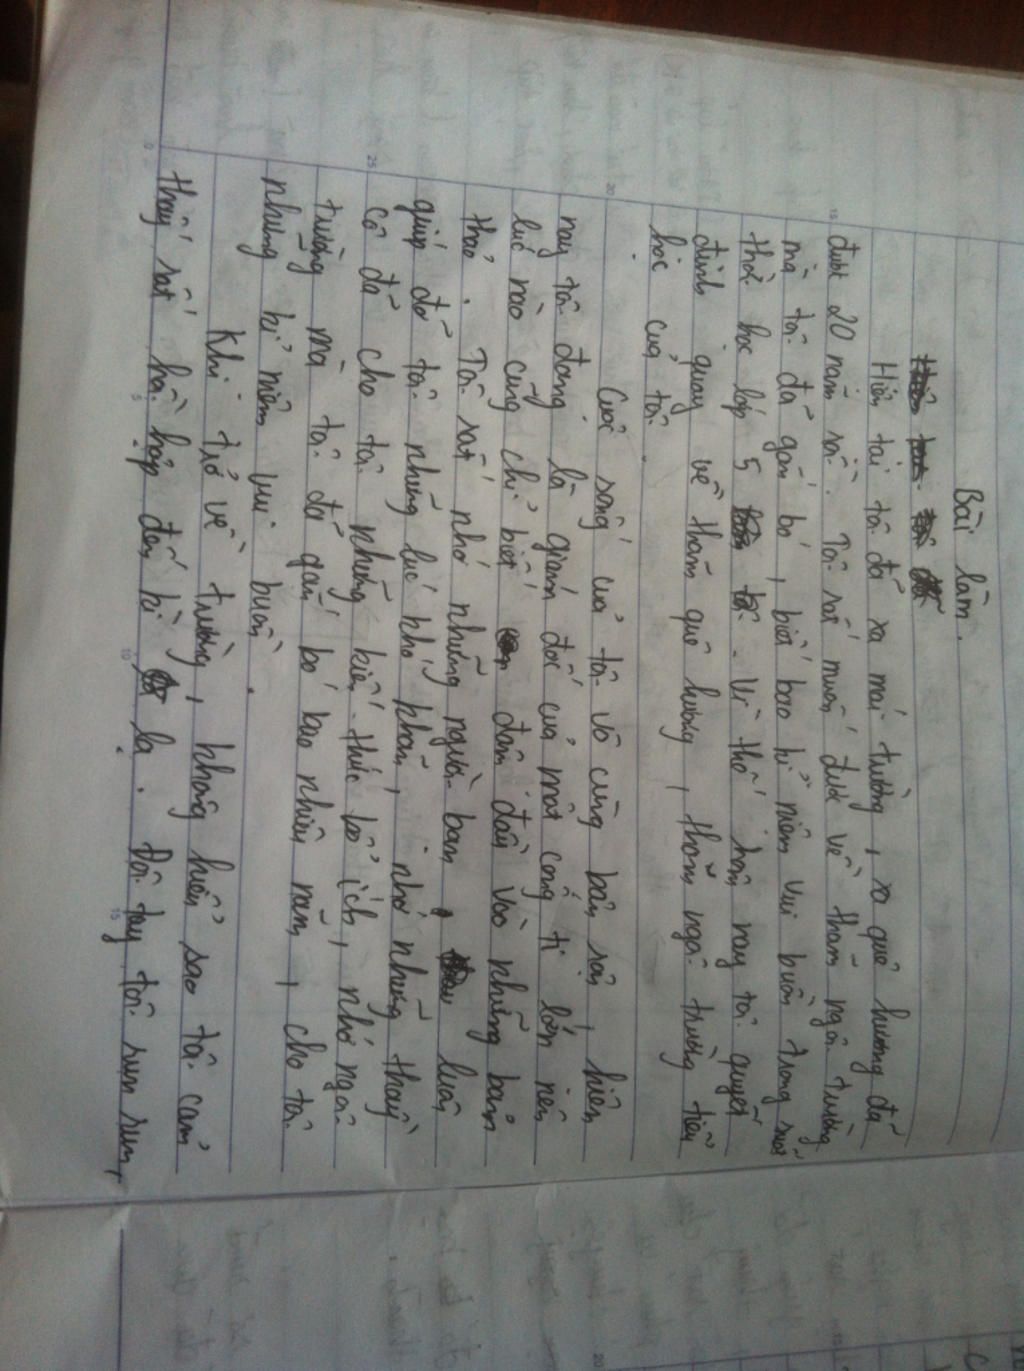 Bài làm.
Hiện tại tôi đã xa mái trường, xa quê hương đã
được 20 năm rồi. Tôi rất muốn được về thăm ngôi trường
mà tôi đã gắn bó, biết bao kỉ niệm vui buồn trong suốt
thời học lớp 5. Vì thế hôm nay tôi quyết
định quay về thăm quê hương, thăm ngôi trường tiểu
học của tôi.
Cuộc sống của tôi vô cùng bận rộn, hiện
nay tôi đang là giám đốc của một công ti lớn nên
lúc nào cũng chỉ biết đâm đầu vào những bản
thảo. Tôi rất nhớ những người bạn, luôn
giúp đỡ tôi những lúc khó khăn, nhớ những thầy
cô đã cho tôi những kiến thức bổ ích, nhớ ngôi
trường mà tôi đã gắn bó bao nhiêu năm, cho tôi
những kỉ niệm vui buồn.
Khi trở về trường, không hiểu sao tôi cảm
thấy rất hồi hộp đến kì lạ. Đôi tay tôi run run,